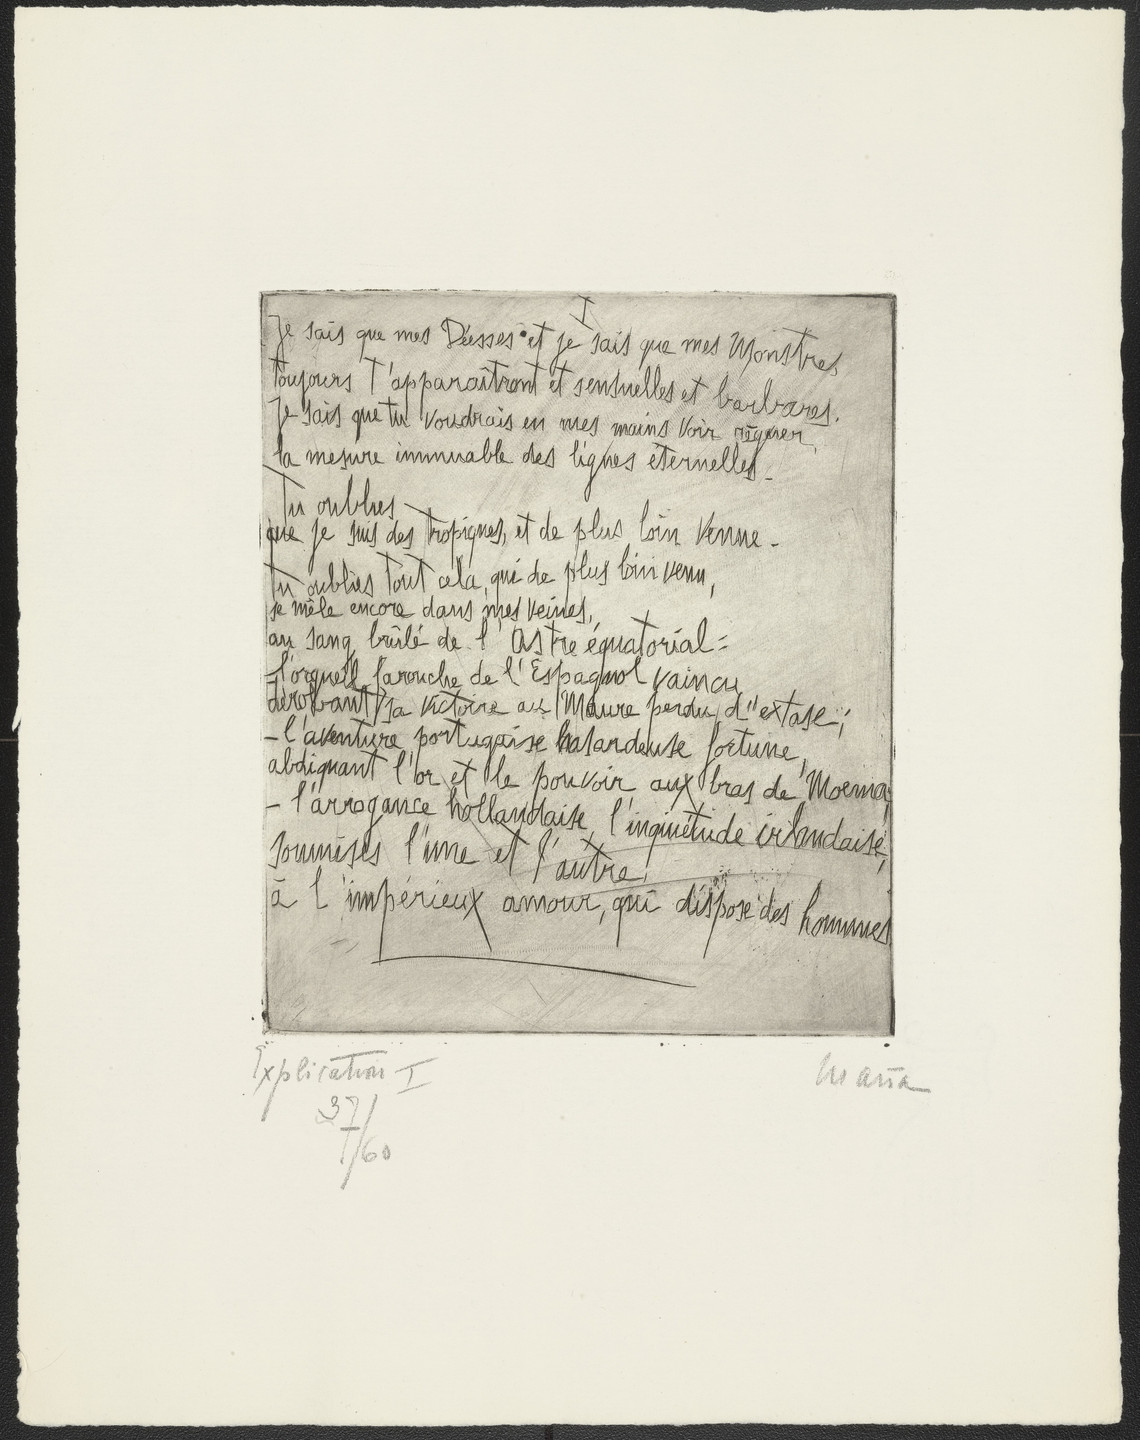 I
Je sais que mes Déesses et je sais que mes Monstres
toujours t'apparaîtront et sensuelles et barbares.
Je sais que tu voudrais en mes mains voir régner,
la mesure immuable des lignes éternelles.
Tu oublies
que je suis des tropiques, et de plus loin venue.
Tu oublies tout cela, qui de plus loin venu,
se mêle encore dans mes veines,
au sang brûlé de l'Astre équatorial:
- l'orgueil farouche de l'Espagnol vaincu
dérobant sa victoire au Maure perdu d'extase;
- l'aventure portugaise hasardeuse fortune,
abdiquant l'or et le pouvoir aux bras de Moema;
- l'arrogance hollandaise, l'inquiétude irlandaise,
soumises l'une et l'autre,
à l'impérieux amour, qui dispose des hommes
Explication I
Maria
37/60